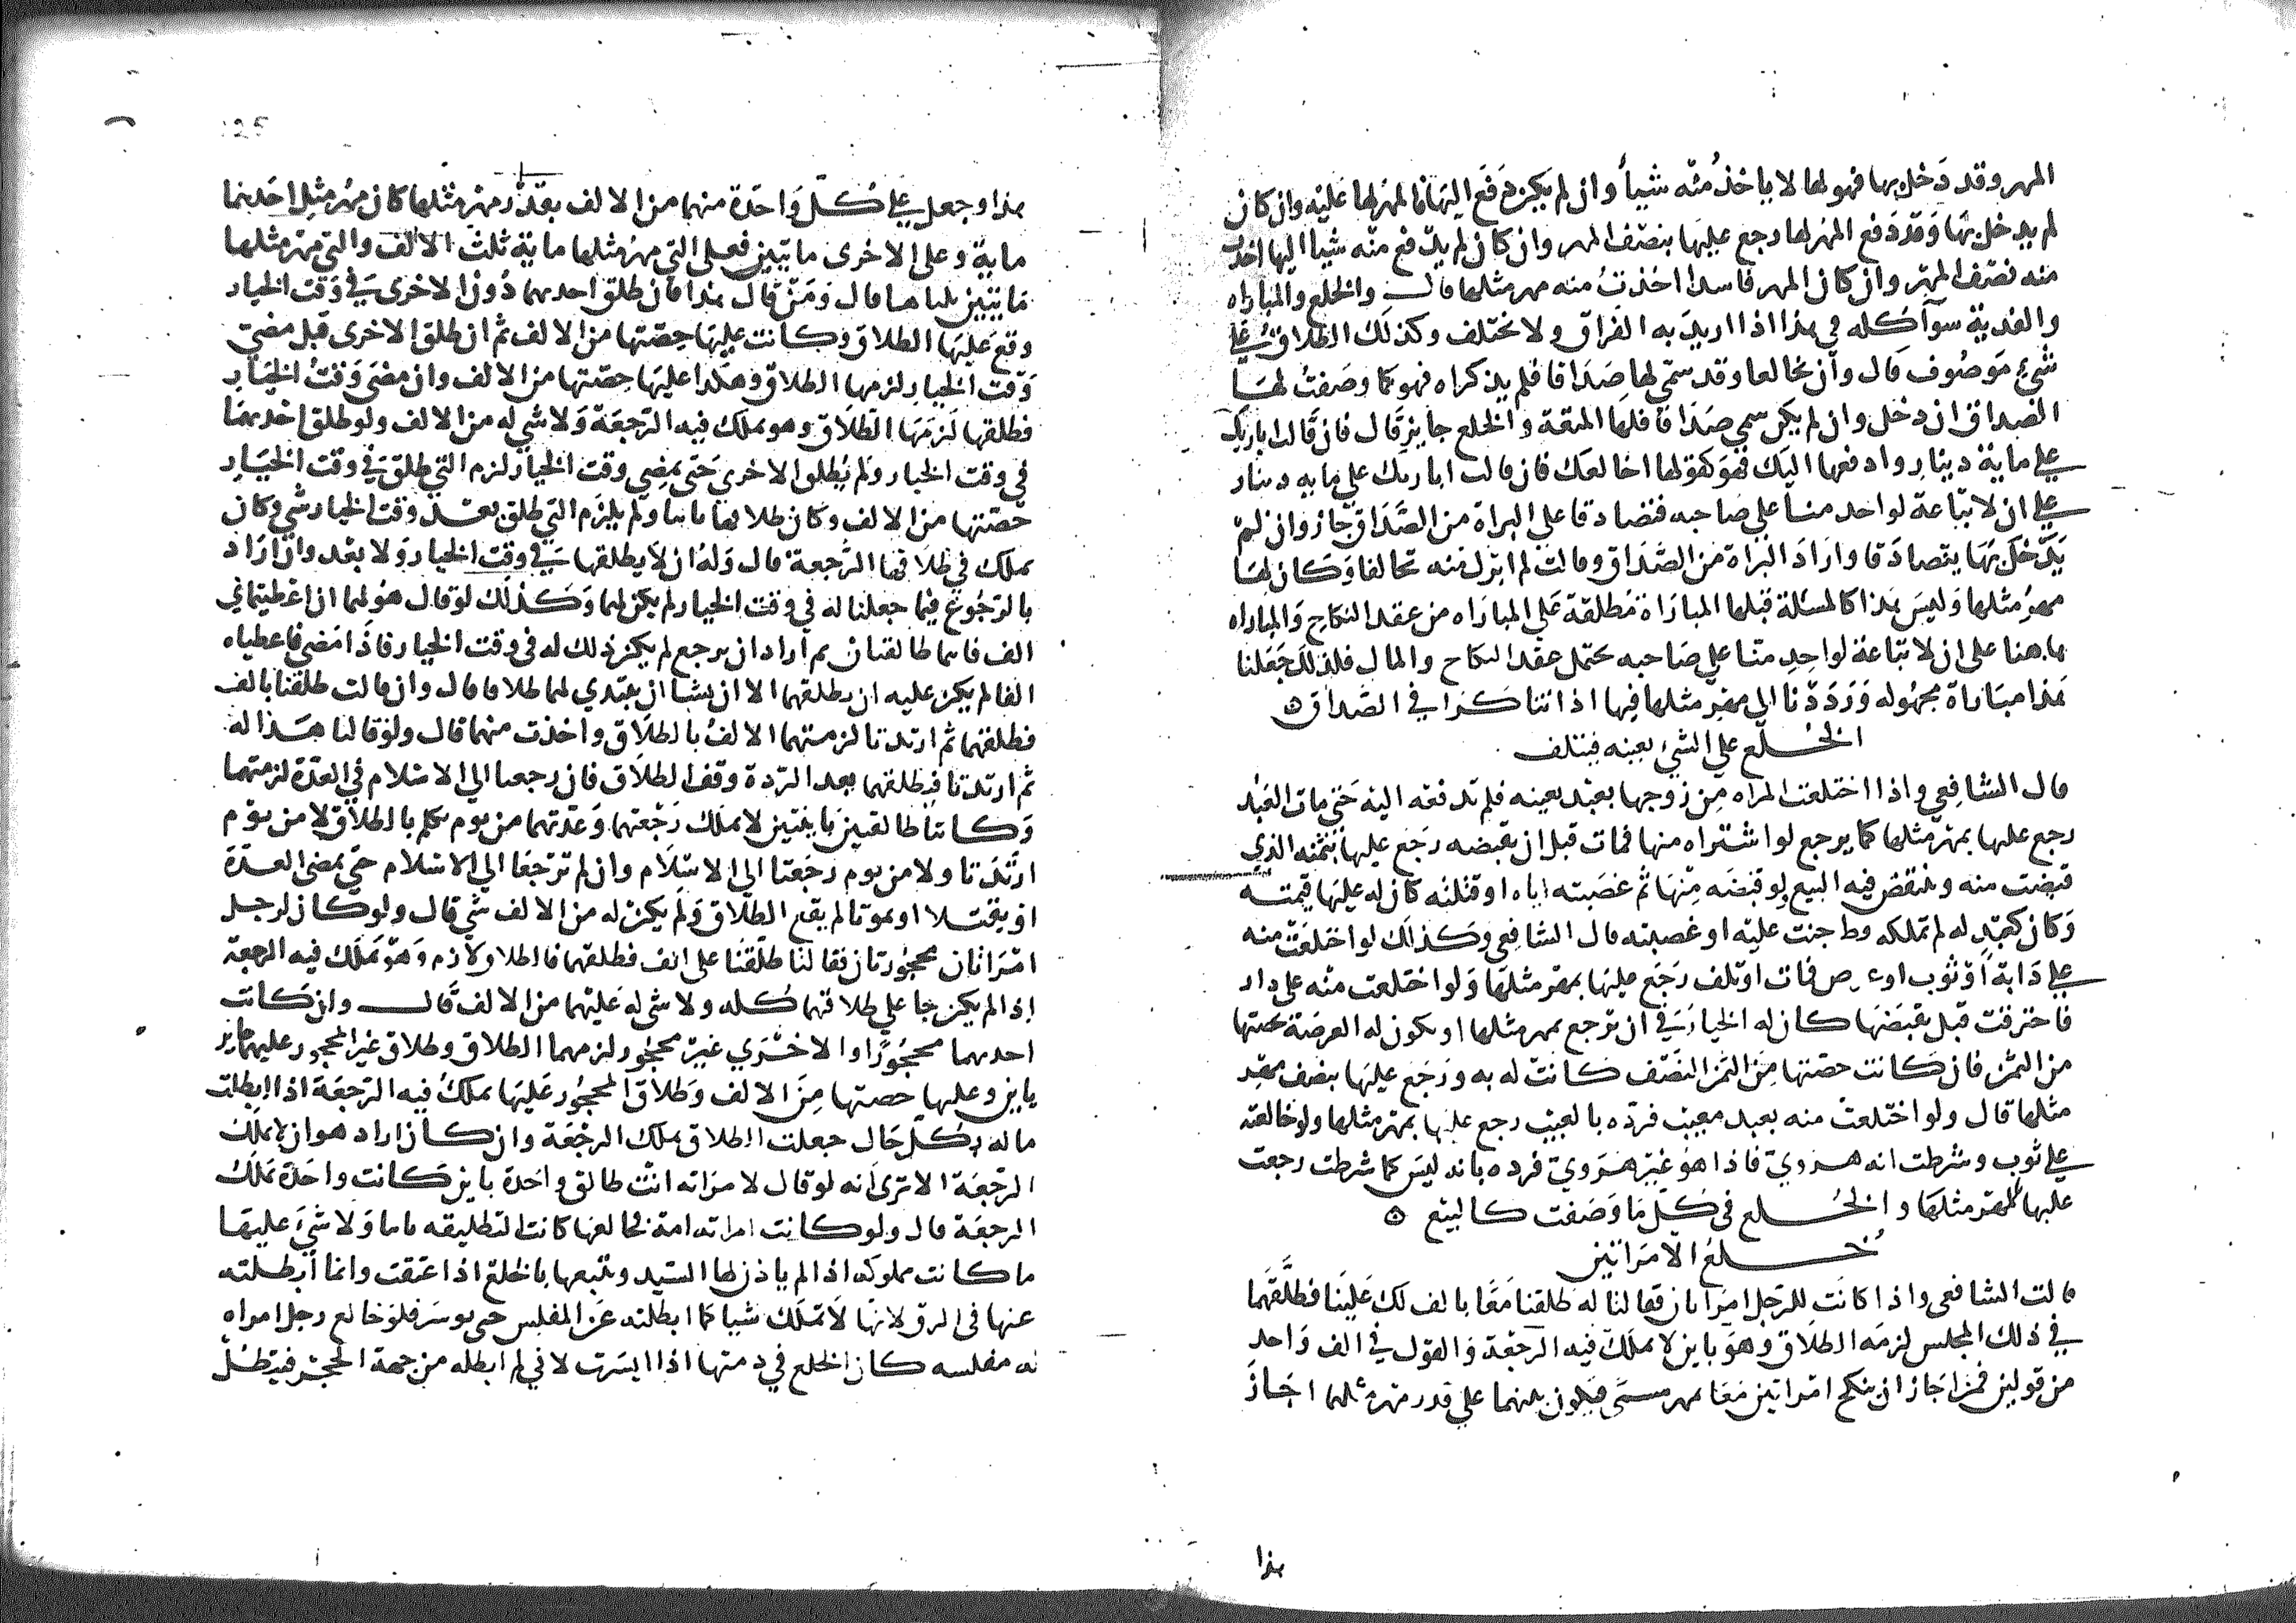 المهر وقد دخل بها فهو لها لا ياخذ منه شيأ وان لم يكن دفع اليها فالمهر لها عليه وان كان
لم يدخل بها وقد دفع المهر لها رجع عليها بنصف المهر وان كان لم يدفع منه شيا اليها اخذت
منه نصف المهر وان كان المهر فاسدا اخذت منه مهر مثلها قال والخلع والمباراه
والفدية سوآ كله في هذا اذا اريد به الفراق ولا يختلف وكذلك الطلاق على
شيء موصوف قال وان تخالعا وقد سمى لها صداقا فلم يذكراه فهو كما وصفت لها
الصداق ان دخل وان لم يكن سمى صداقا فلها المتعة والخلع جايز قال فان قالت باريك
على ماية دينار وادفعها اليك فهو كقولها اخالعك فان قالت اباريك على مايه دينار
على ان لا تباعة لواحد منا على صاحبه فتصادقا على البراة من الصداق جاز وان لم
يدخل بها يتصادقا واراد البراة من الصداق وقالت لم ابرك منه تحالفا وكان لها
مهر مثلها وليس هذا كالمسئلة قبلها المباراة مطلقة على المباراه من عقد النكاح والمباراه
هاهنا على ان لا تباعة لواحد منا على صاحبه يحتمل عقد النكاح والمال فلذلك جعلنا
هذا مباراة مجهوله ورددنا الى مهر مثلها فيها اذا تناكرا في الصداق ه
الخلع على الشي بعينه فيتلف
قال الشافعي واذا اختلعت المراه من زوجها بعبد بعينه فلم تدفعه اليه حتى مات العبد
رجع عليها بمهر مثلها كما يرجع لو اشتراه منها فمات قبل ان يقبضه رجع عليها بثمنه الذي
قبضت منه وينتقض فيه البيع ولو قبضه منها ثم غصبته اياه او قتلته كان له عليها قيمته
وكان كعبد له لم تملكه قط جنت عليه او غصبته قال الشافعي وكذلك لو اختلعت منه
على دابة او ثوب او عرض فمات او تلف رجع عليها بمهر مثلها ولو اختلعت منه على دار
فاحترقت قبل يقبضها كان له الخيار في ان يرجع بمهر مثلها او يكون له العرصة بحصتها
من الثمن فان كانت حصتها من الثمن النصف كانت له به ورجع عليها بنصف مهر
مثلها قال ولو اختلعت منه بعبد معيب فرده بالعيب رجع عليها بمهر مثلها ولو خالعته
على ثوب وشرطت انه هروي فاذا هو غير هروي فرده بانه ليس كما شرطت رجعت
عليها المهر مثلها والخلع في كل ما وصفت كالبيع ه
خلع الامراتين
قالت الشافعي واذا كانت للرجل امراتان فقالتا له طلقنا معا بالف لك علينا فطلقهما
في ذلك المجلس لزمه الطلاق وهو باين لا يملك فيه الرجعة والقول في الف واحد
من قولين فمن اجاز ان ينكح امراتين معا بمهر مسمى فيكون بينهما على قدر مهر مثلهما اجاز
هذا
هذا وجعل على كل واحدة منهما من الالف بقدر مهر مثلها كان مهر مثل احديهما
ماية وعلى الاخرى مايتين فعلى التي مهر مثلها ماية ثلث الالف والتي مهر مثلها
مايتين ثلثاها قال ومن قال هذا فان طلق احديهما دون الاخرى في وقت الخيار
وقع عليها الطلاق وكانت عليها حصتها من الالف ثم ان طلق الاخرى قبل مضي
وقت الخيار لزمها الطلاق وهكذا عليها حصتها من الالف وان مضى وقت الخيار
فطلقها لزمها الطلاق وهو يملك فيه الرجعة ولا شي له من الالف ولو طلق احديهما
في وقت الخيار ولم يطلق الاخرى حتى يمضي وقت الخيار لزم التي طلق في وقت الخيار
حصتها من الالف وكان طلاقها باينا ولم يلزم التي طلق بعد وقت الخيار شي وكان
يملك في طلاقها الرجعة قال وله ان لا يطلقها في وقت الخيار ولا بعد وان اراد
بالرجوع فيما جعلنا له في وقت الخيار لم يكن لهما وكذلك لو قال هو لهما ان اعطيتماني
الف فانتما طالقتان ثم اراد ان يرجع لم يكن ذلك له في وقت الخيار فاذا مضى فاعطياه
الفا لم يكن عليه ان يطلقهما الا ان يشا ان يبتدي لهما طلاقا قال وان قالت طلقنا بالف
فطلقهما ثم ارتدتا لزمتهما الالف بالطلاق واخذت منهما قال ولو قالتا هذا له
ثم ارتدتا فطلقهما بعد الردة وقف الطلاق فان رجعتا الى الاسلام في العدة لزمتهما
وكانتا طالقتين باينتين لا يملك رجعتهما وعدتهما من يوم تكلم بالطلاق لا من يوم
ارتدتا ولا من يوم رجعتا الى الاسلام وان لم ترجعا الى الاسلام حتى يمضي العدة
او يقتلا او يموتا لم يقع الطلاق ولم يكن له من الالف شي قال ولو كان لرجل
امراتان محجورتان فقالتا طلقنا على الف فطلقهما فالطلاق لازم وهو يملك فيه الرجعة
اذا لم يكن جا على طلاقهما كله ولا شي له عليهما من الالف قال وان كانت
احديهما محجورا والاخرى غير محجور لزمهما الطلاق وطلاق غير المحجور عليها جايز
باين وعليها حصتها من الالف وطلاق المحجور عليها يملك فيه الرجعة اذا ابطلت
ماله بكل حال جعلت الطلاق يملك الرجعة وان كان اراد هو ان لا يملك
الرجعة الا ترى انه لو قال لامراته انت طالق واحدة باين كانت واحدة يملك
الرجعة قال ولو كانت امراته امة فخالعها كانت التطليقه باينا ولا شي عليها
ما كانت مملوكه اذا لم ياذن لها السيد ويتبعها بالخلع اذا عتقت وانما ابطلته
عنها في الرق لانها لا تملك شيا كما ابطلته عن المفلس حتى يوسر فلو خالع رجل امراه
له مفلسه كان الخلع في ذمتها اذا ايسرت لاني لم ابطله من جهة الحجر فيبطل